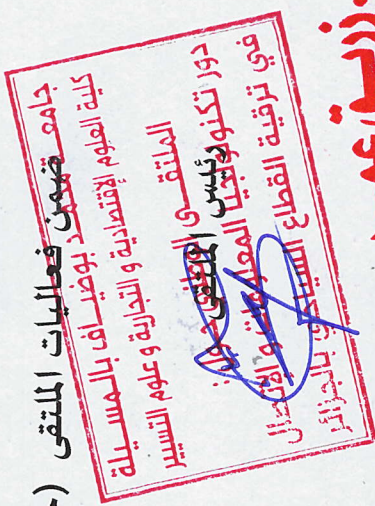 ضمن فعاليات الملتقى (
جامعة محمد بوضياف بالمسيلة
كلية العلوم الإقتصادية و التجارية و علوم التسيير
الملتقى الوطني حول:
دور تكنولوجيا المعلومات و الإتصال
في ترقية القطاع السياحي بالجزائر
رئيس الملتقى